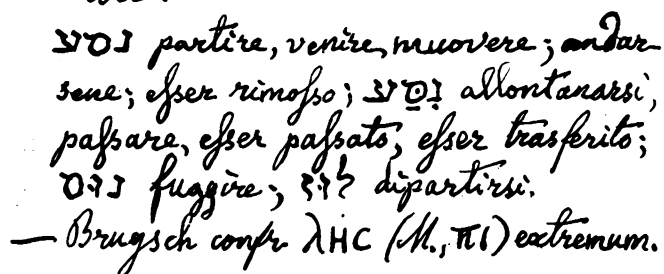 נסע partire, venire, muovere; andar-
sene; eſser rimoſso; נִסַּע allontanarsi,
paſsare, eſser paſsato, eſser trasferito;
נוס fuggire; לוז dipartirsi.
— Brugsch confr. ⲗⲏⲥ (M., ⲡⲓ) extremum.